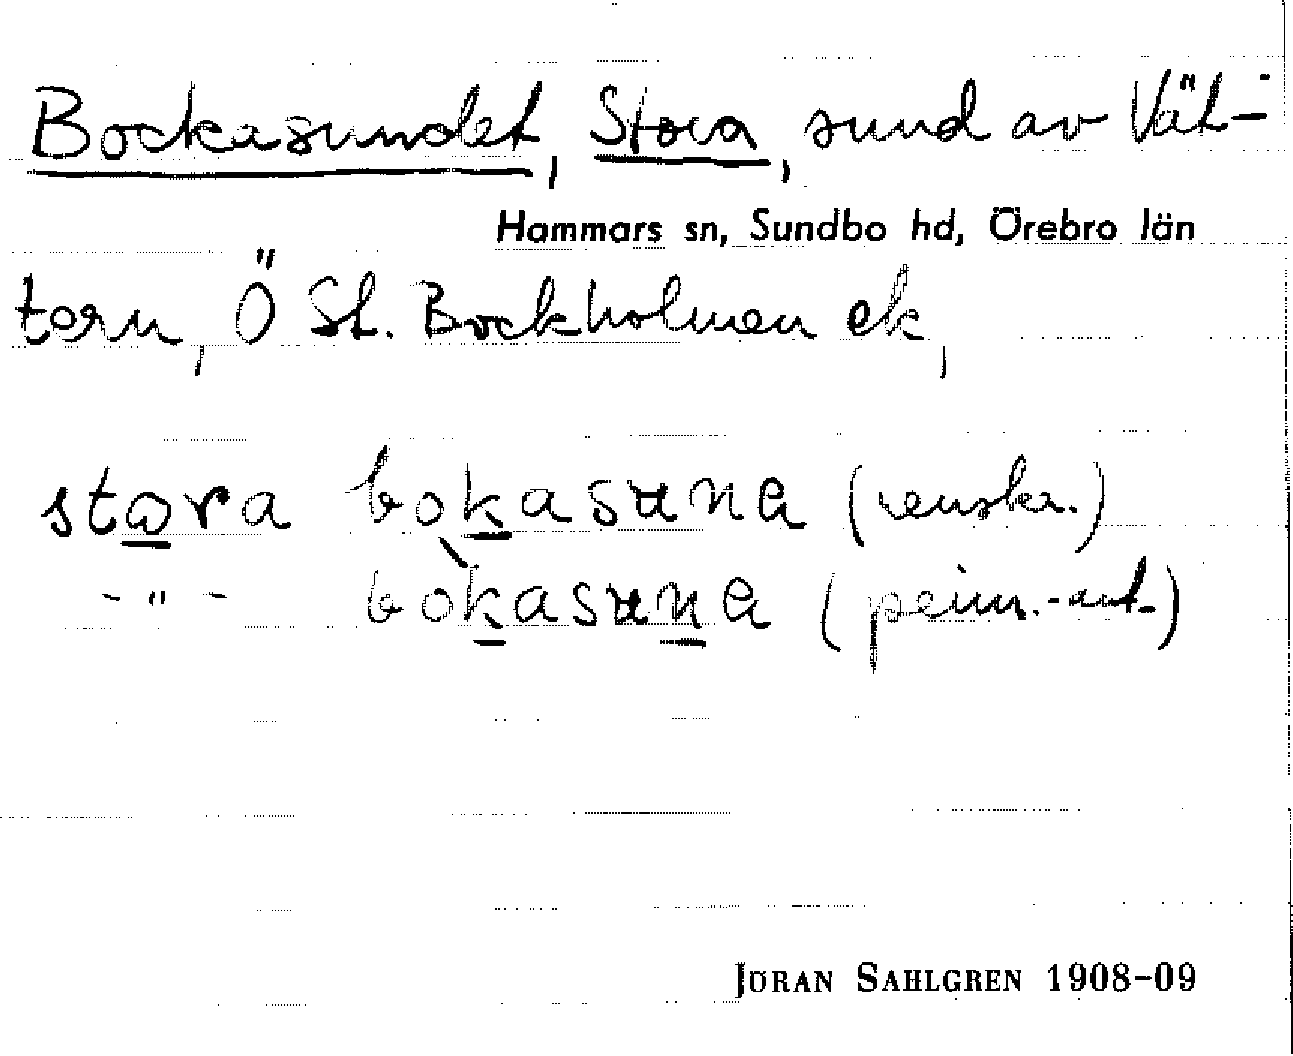 Bockasundet, Stora, sund av Vät-
Hammars sn, Sundbo hd, Örebro län
tern, Ö St. Bockholmen ek,
stora bokasuna (renskr.)
-"- bokasuna (prim.-ant.)
JÖRAN SAHLGREN 1908-09